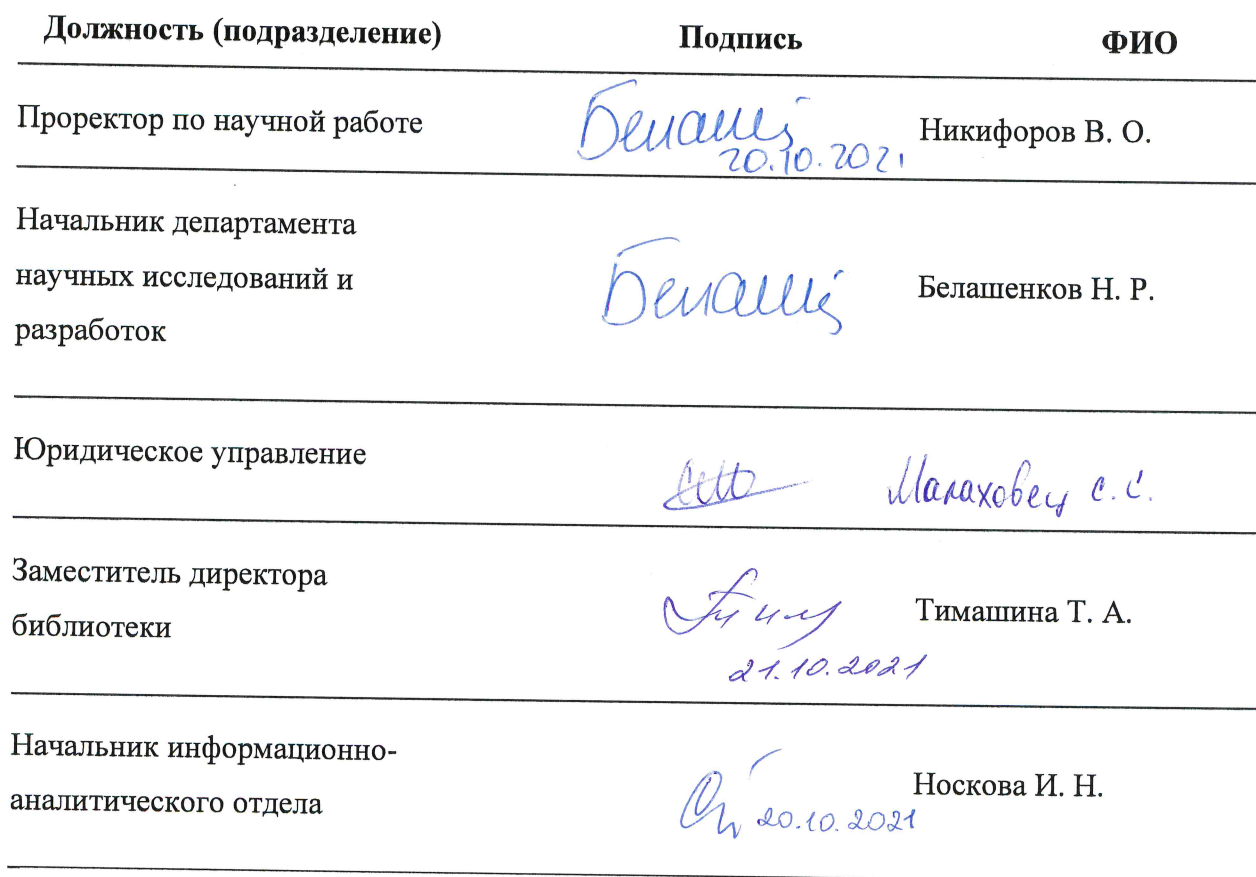 Должность (подразделение) Подпись ФИО
Проректор по научной работе Белаш Никифоров В. О.
20.10.2021
Начальник департамента
научных исследований и Белаш Белашенков Н. Р.
разработок
Юридическое управление Малаховец С. С.
Заместитель директора
библиотеки Тимашина Т. А.
21.10.2021
Начальник информационно-
аналитического отдела 20.10.2021 Носкова И. Н.